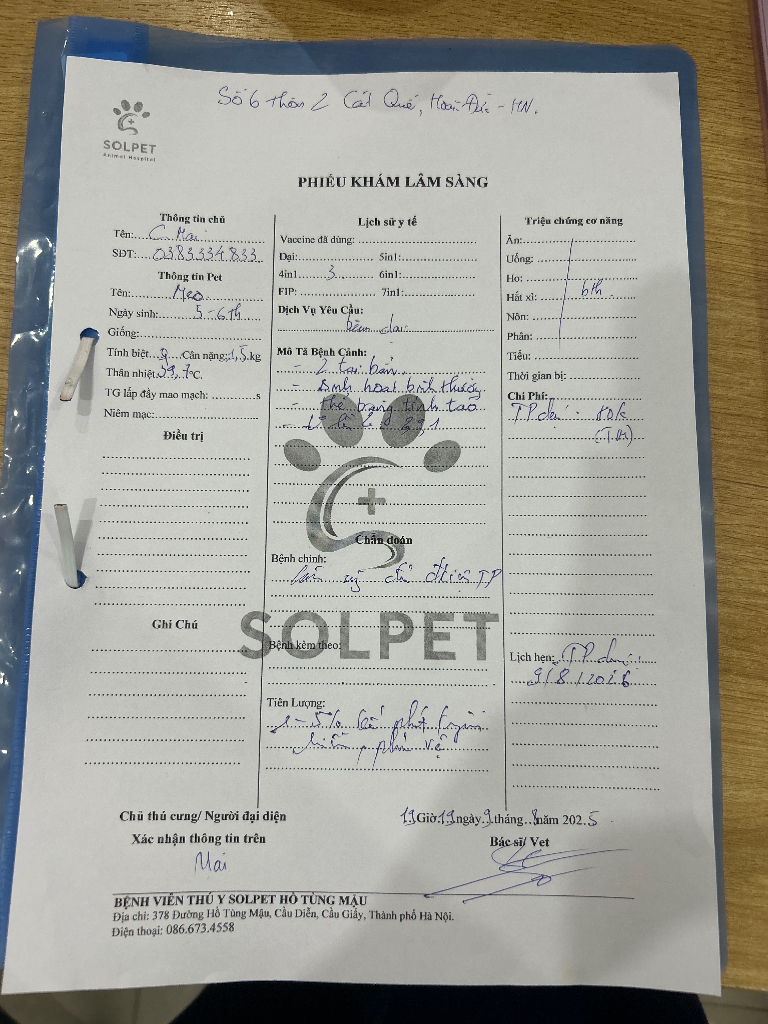 Số 6 thôn 2 Cát Quế, Hoài Đức - HN.
SOLPET
Animal Hospital
PHIẾU KHÁM LÂM SÀNG
Thông tin chủ
Tên: C Mai
SĐT: 0383334833
Thông tin Pet
Tên: Mèo
Ngày sinh: 5-6th
Giống:
Tính biệt ♀ Cân nặng: 1,5 kg
Thân nhiệt 39,7°C.
TG lấp đầy mao mạch: s
Niêm mạc:
Điều trị
Ghi Chú
Lịch sử y tế
Vaccine đã dùng:
Dại: 5in1:
4in1 3 6in1:
FIP: 7in1:
Dịch Vụ Yêu Cầu:
tiêm dại
Mô Tả Bệnh Cảnh:
- 2 tai bẩn
- sinh hoạt bình thường
- thể trạng tỉnh táo
Chẩn đoán
Bệnh chính:
đủ điều TP
SOLPET
Bệnh kèm theo:
Tiên Lượng:
1-5% phát
phản vệ
Triệu chứng cơ năng
Ăn:
Uống:
Ho:
Hắt xì: bth
Nôn:
Phân:
Tiểu:
Thời gian bị:
Chi Phí:
TP dại: 80k
(T.M)
Lịch hẹn: TP dại:
9/8/2026
Chủ thú cưng/ Người đại diện
Xác nhận thông tin trên
Mai
19 Giờ 19 ngày 9 tháng 8 năm 2025
Bác sĩ/ Vet
BỆNH VIỆN THÚ Y SOLPET HỒ TÙNG MẬU
Địa chỉ: 378 Đường Hồ Tùng Mậu, Cầu Diễn, Cầu Giấy, Thành phố Hà Nội.
Điện thoại: 086.673.4558